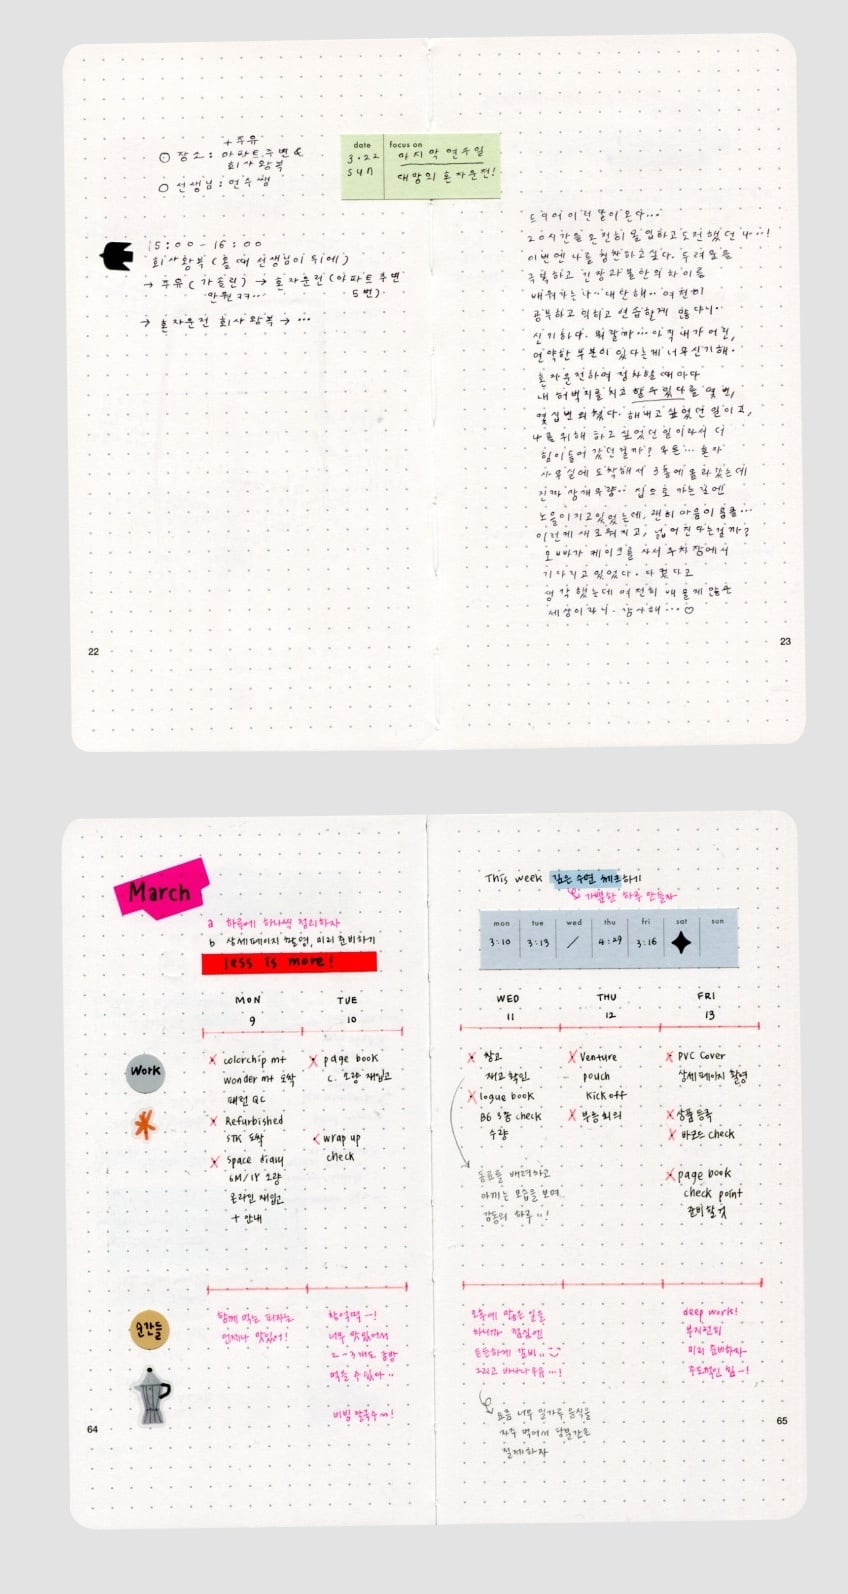 + 주유
○ 장소 : 아파트 주변 &
회사 왕복
○ 선생님 : 연수쌤
date
3.22
sun
focus on
마지막 연수일
대망의 혼자운전!
15:00 - 16:00
회사왕복 (올 때 선생님이 뒤에)
→ 주유 (가솔린) → 혼자운전 (아파트 주변
만원 ㅋㅋ… 5번)
→ 혼자운전 회사왕복 → …
드디어 이런 날이 온다…
20시간을 온전히 몰입하고 도전했던 나..!
이번엔 나를 칭찬하고 싶다. 두려움을
극복하고 긴장과 불안의 차이를
배워가는 나.. 대단해.. 여전히
공부하고 익히고 연습할게 많다니..
신기하다. 뭐랄까… 아직 내가 여린,
연약한 부분이 있다는게 너무 신기해.
혼자운전하며 정차할 때마다
내 허벅지를 치고 할 수 있다를 몇 번,
몇 십번 외쳤다. 해내고 싶었던 일이고,
나를 위해 하고 싶었던 일이라서 더
힘이 들어 갔던걸까? 무튼… 혼자
사무실에 도착해서 3층에 올라갔는데
진짜 감개무량.. 집으로 가는 길엔
노을이 지고 있었는데, 괜히 마음이 뭉클…
이렇게 새로워지고, 넓어진다는걸까?
오빠가 케이크를 사서 주차장에서
기다리고 있었다. 다 컸다고
생각했는데 여전히 애 못지 않은
세상이라니. 감사해…♡
22
23
March
a 하루에 하나씩 정리하자
b 상세페이지 촬영, 미리 준비하기
less is more!
This week 깊은 수면 체크하기
가뿐한 하루 만들자
mon tue wed thu fri sat sun
3:10 3:13 / 4:29 3:16
MON TUE WED THU FRI
9 10 11 12 13
work
colorchip mt
wonder mt 도착
패턴 QC
Refurbished
STK 도착
space diary
6M/1Y 소량
온라인 재입고
+ 안내
page book
C. 소량 재입고
wrap up
check
창고
재고 확인
logue book
B6 3종 check
수량
동료를 배려하고
아끼는 모습을 보며
감동의 하루..!
Venture
pouch
Kick off
부동회의
PVC Cover
상세페이지 촬영
상품등록
바코드 check
page book
check point
준비할 것
순간들
함께 먹는 피자는
언제나 맛있어!
찹쌀떡 ~!
너무 맛있어서
2-3개도 금방
먹을 수 있다..
비빔 칼국수~!
오후에 많은 일을
하니까 점심엔
든든하게 갈비..
그리고 바나나 우유…!
요즘 너무 밀가루 음식을
자주 먹어서 당분간은
절제하자
deep work!
부지런히
미리 준비하자
주도적인 힘~!
64
65